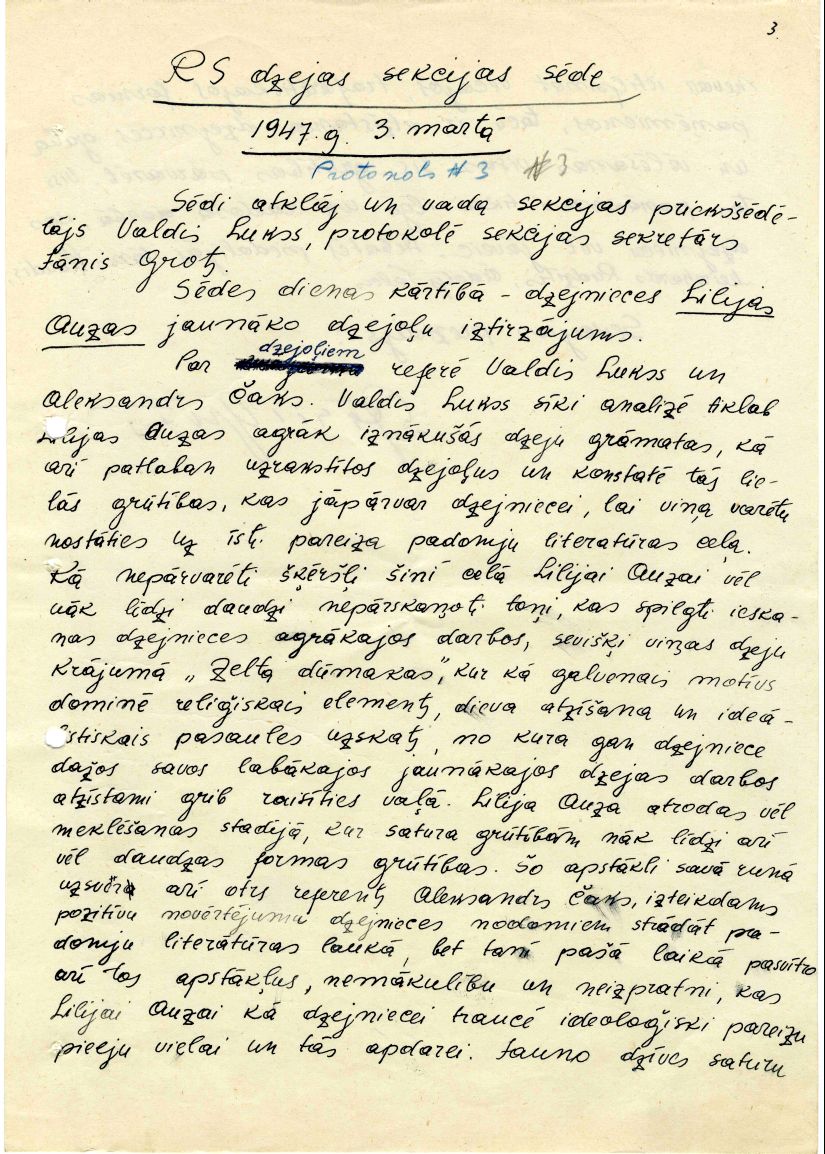 3.
RS dzejas sekcijas sēde
1947. g. 3. martā
Protokols # 3 # 3
Sēdi atklāj un vada sekcijas priekšsēdē-
tājs Valdis Lukss, protokolē sekcijas sekretārs
Jānis Grots.
Sēdes dienas kārtībā - dzejnieces Lilijas
Auzas jaunāko dzejoļu iztirzājums.
Par dzejoļiem referē Valdis Lukss un
Aleksandrs Čaks. Valdis Lukss sīki analizē tiklab
Lilijas Auzas agrāk iznākušās dzeju grāmatas, kā
arī patlaban uzrakstītos dzejoļus un konstatē tās lie-
lās grūtības, kas jāpārvar dzejniecei, lai viņa varētu
nostāties uz īsti pareiza padomju literatūras ceļa.
Kā nepārvarēti šķēršļi šinī ceļā Lilijai Auzai vēl
nāk līdzi daudzi nepārskaņoti toņi, kas spilgti ieska-
nas dzejnieces agrākajos darbos, sevišķi viņas dzeju
krājumā „Zelta dūmakas", kur kā galvenais motīvs
dominē reliģiskais elements, dieva atzīšana un ideā-
listiskais pasaules uzskats, no kura gan dzejniece
dažos savos labākajos jaunākajos dzejas darbos
atzīstami grib raisīties vaļā. Lilija Auza atrodas vēl
meklēšanas stadijā, kur satura grūtībām nāk līdzi arī
vēl daudzas formas grūtības. Šo apstākli savā runā
uzsvēra arī otrs referents Aleksandrs Čaks, izteikdams
pozitīvu novērtējumu dzejnieces nodomiem strādāt pa-
domju literatūras laukā, bet tanī pašā laikā pasvītro
arī tos apstākļus, nemākulību un neizpratni, kas
Lilijai Auzai kā dzejniecei traucē ideoloģiski pareizu
pieeju vielai un tās apdarei. Jauno dzīves saturu